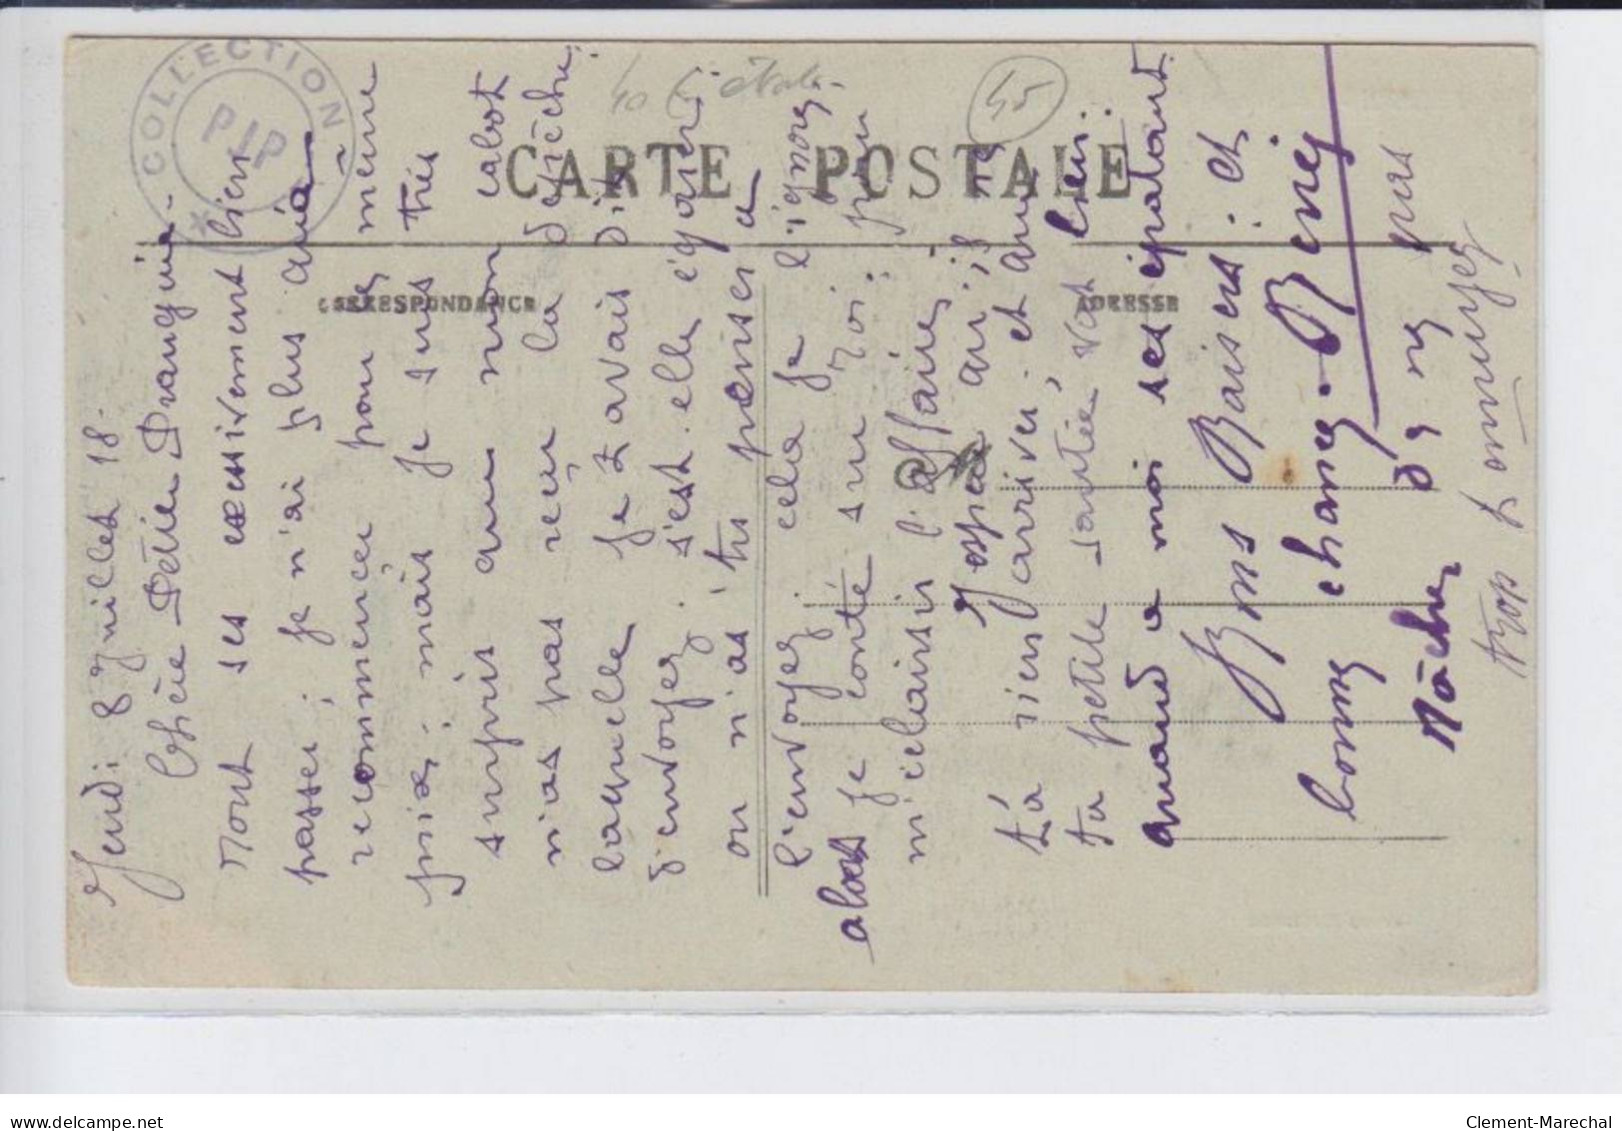 COLLECTION
PJP
45
CARTE POSTALE
CORRESPONDANCE
ADRESSE
Jeudi 8 Juillet 18.
Chère Petite
Mont ses excessivement bien
passer; je n'ai plus qu'a
recommencer pour le même
prix, mais je suis très
surpris que mon cabot
n'as pas reçu la depêche
laquelle je t'avais dit
d'envoyez. s'est-elle égarer
ou n'as tu penser a
l'envoyez. cela je l'ignore.
alors je conte sur toi: pour
m'eclaissir l'affaire.
J'espere qu'il ne
t'a rien arriver. et que
ta petite santée, vat bien.
quand a moi ses épatant.
Bons Baisers. et
bonne chance. René
Tâcher d'y ne pas
trop t'ennuyez
Clement-Marechal